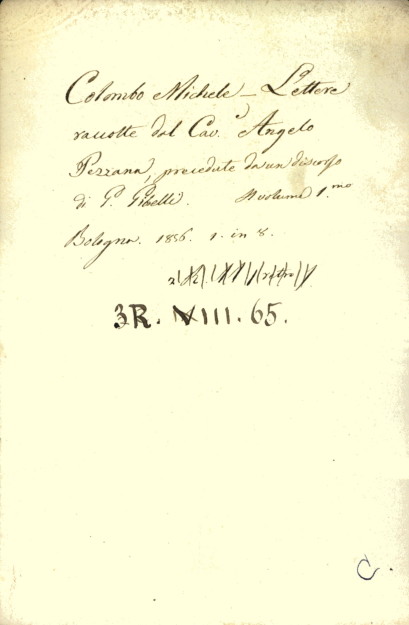 Colombo Michele – Lettere
raccolte dal Cav.r Angelo
Pezzana, precedute da un discorso
di P. Gibelli. Il volume 1.mo
Bologna. 1856. 1. in 8.
3R. VIII. 65.
C.